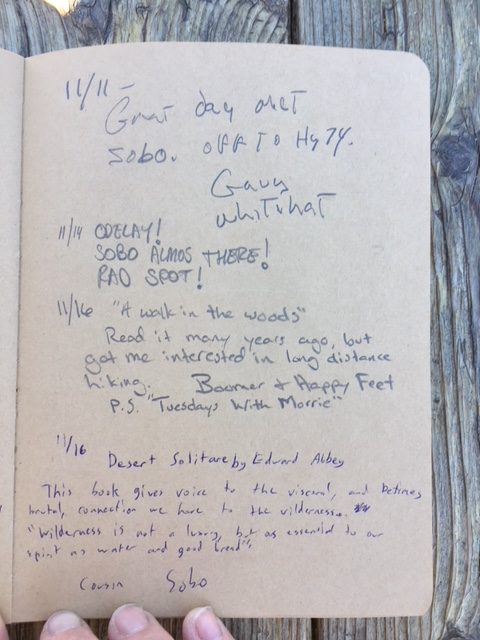 11/11 -
Great day met
sobo. off to Hy 74.
Gary
whitihat
11/14 ODELAY!
SOBO ALMOS THERE!
RAD SPOT!
11/16 "A walk in the woods"
Read it many years ago, but
got me interested in long distance
hiking. Boomer + Happy Feet
P.S. "Tuesdays With Morrie"
11/16
Desert Solitare by Edward Abbey
This book gives voice to the visceral, and betimes
brutal, connection we have to the wilderness.
"Wilderness is not a luxury, but as essential to our
spirit as water and good bread".
Cousin Sobo